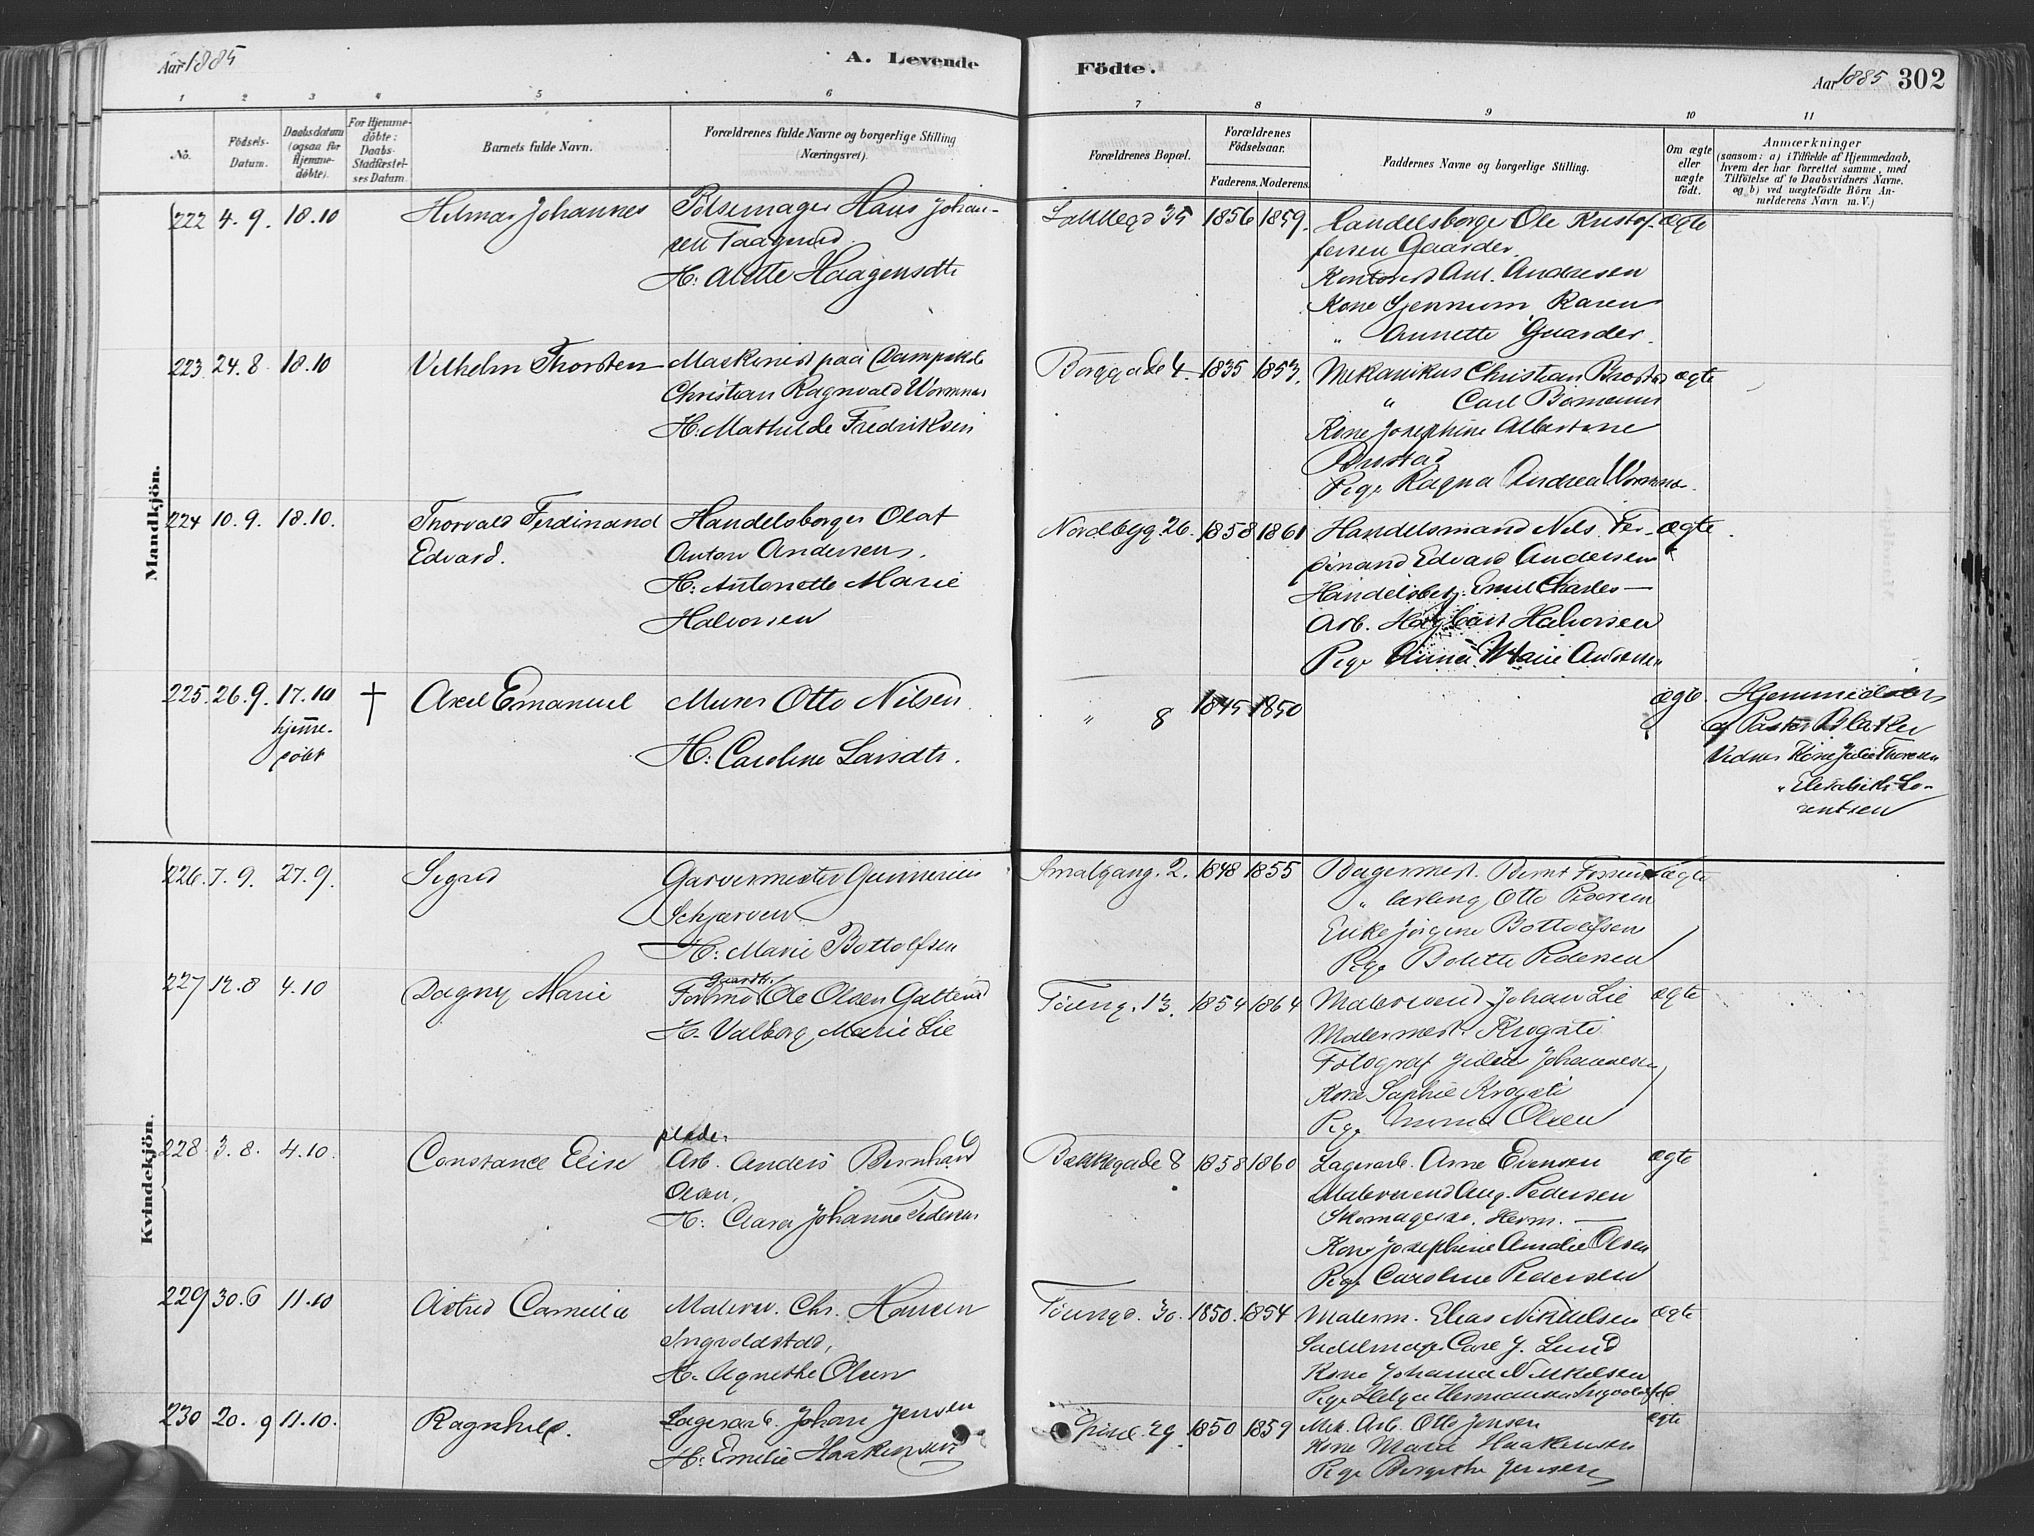 Aar 1885
A. Levende
Födte.
Aar 1885 302
1 2 3 4 5 6 7 8 9 10 11
No.
Födsels-
Datum.
Daabsdatum
(ogsaa for
Hjemme-
döbte).
For Hjemme-
döbte:
Daabs-
Stadfæstel-
ses Datum.
Barnets fulde Navn.
Forældrenes fulde Navne og borgerlige Stilling
(Næringsvei).
Forældrenes Bopæl.
Forældrenes
Födselsaar.
Faderens. Moderens.
Faddernes Navne og borgerlige Stilling.
Om ægte
eller
uægte
födt.
Anmærkninger
(saasom: a) i Tilfælde af Hjemmedaab,
hvem der har forrettet samme, med
Tilföielse af to Daabsvidners Navne,
og b) ved uægtefödte Börn An-
melderens Navn m. V.)
Mandkjön.
222 4. 9. 18.10 Hilmar Johannes
Pölsemager Hans Johan-
sen
H: Haagensdtr
35 1856 1859.
Handelsborge Ole Kristof-
fersen Gaarder
Kontorist Ant. Andresen
Kone Karen
" Annette Gaarder.
ægte
223 24. 8 18.10 Vilhelm Thorsten
Maskinist paa
Christian Ragnvald
H: Mathilde Fredriksen
Borggade 4. 1835 1853.
Mekanikus Christian
" Carl
Kone Josephine Albertine
Pige Ragna Andrea
ægte
224 10. 9. 18.10. Thorvald Ferdinand
Edvard.
Handelsborger Olaf
Anton Andersen,
H: Antonette Marie
Halvorsen
Nordbygg. 26. 1858 1861
Handelsmand Nils Fer-
dinand Edvard Andersen
Handelsbetj. Emil Charles —
Arb. Halvorsen
Pige Anna Marie Andersen
ægte
225. 26. 9. 17.10
hjemme-
döbt
† Axel Emanuel
Murer Otto Nilsen
H: Caroline Larsdtr.
" 8 1845 1850
ægte.
Hjemmedöbt
af Pastor
Vidner Kone Julie Thoresen
" Elisabeth Lo-
rentsen
Kvindekjön.
226. 7. 9. 27. 9. Sigrid
Garvermester Gunnerius
Schjerven
H: Marie Bottolfsen
Smalgang. 2. 1848 1855
Bagermest. Bernt
" lærling Otto Pedersen
Enke Jörgine Bottolfsen
Pige Bolette Pedersen
ægte
227 12. 8 4.10 Dagny Marie
Ole Olsen
H. Valborg Marie Lie
Töieng. 13. 1854 1864
Malersvend Johan Lie
Malermest.
Fotograf Johannesen
Kone Sophie
Pige Olsen
ægte
228 3. 8. 4.10. Constance Elise
plade-
Arb. Anders Bernhard
Olsen,
H: Clara Johanne Pedersen
Bakkegade 8 1858 1860
Lagerarb. Arne Evensen
Malersvend Aug. Pedersen
Skomager Herm. —
Kone Josephine Amalie Olsen
Pige Caroline Pedersen
ægte
229 30. 6 11.10 Astrid Camilla
Malersv. Chr. Hansen
Ingvoldstad,
H. Agnethe Olsen
Töiengd. 30. 1850. 1854
Malerm. Elias Nikkelsen
Sadelmager Carl J. Lund
Kone Johanna Nikkelsen
Pige Helga Hermansen
ægte
230 20. 9 11.10. Ragnhild.
Lagerarb. Johan Jensen
H: Emelie Haakensen
29. 1850 1859
Mek. Arb. Otto Jensen
Kone Marie Haakensen
Pige Bergitte Jensen
ægte